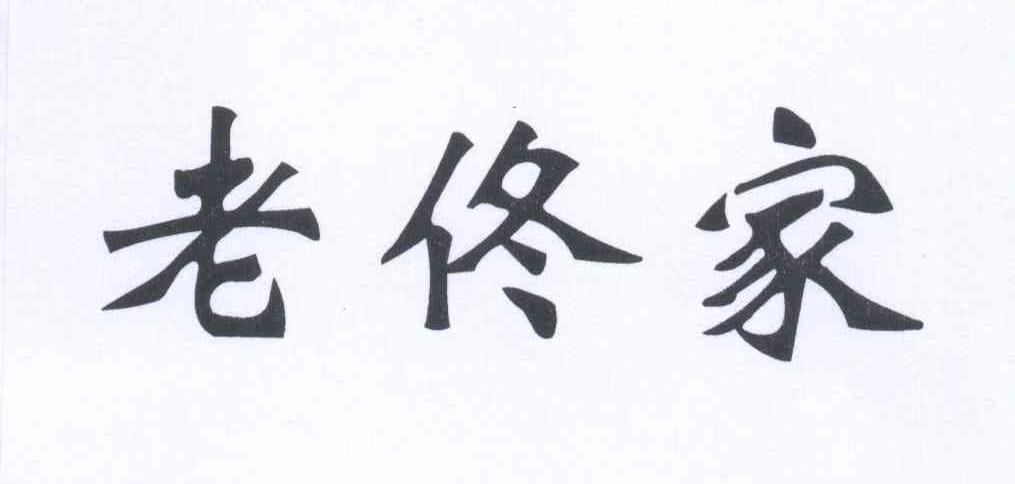 老佟家